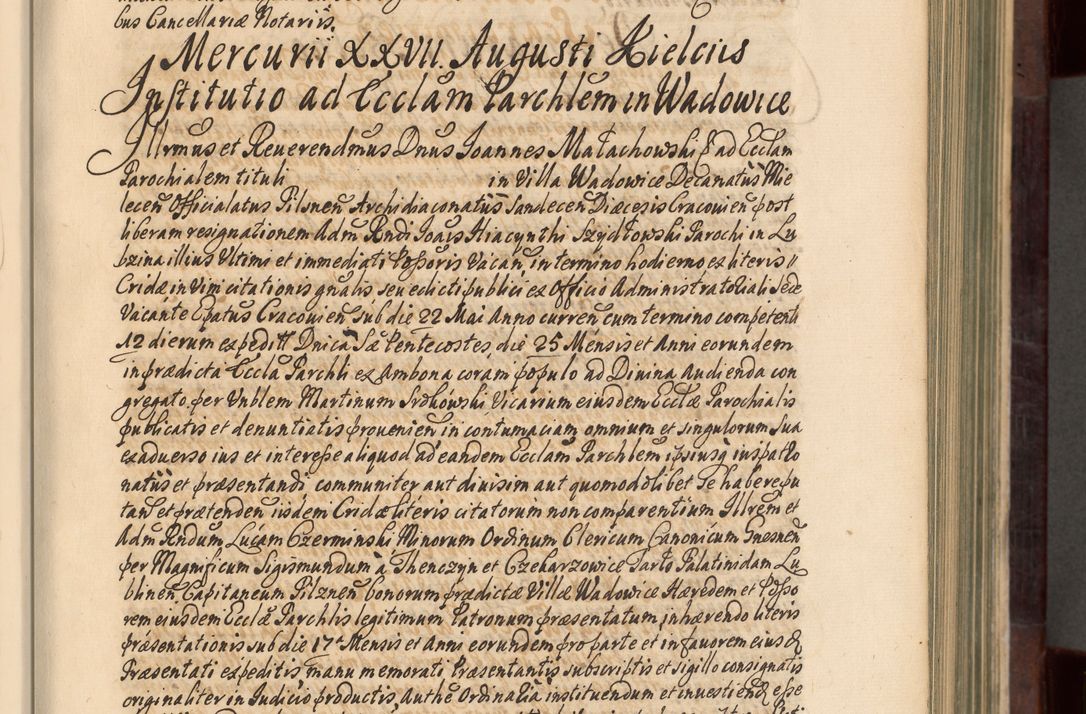 bus Cancellariæ Notariis.
Mercurii XXVII. Augusti Kielciis
Institutio ad Ecclam Parchlem in Wadowice
Illrmus et Reuerendmus Dnus Joannes Małachowski P ad Ecclam
Parochialem tituli in Villa Wadowice Decanatus Mie
lecen Officialatus Pilsnen Archidiaconatus Sandecen Diæcesis Cracouien post
liberam resignationem Adm Rndi Joais Hiacynthi Szydłowski Parochi in Lu
bzina illius Vltimi et immediati Possoris Vacan, in termino hodierno ex literis
Cridæ in vim citationis gnalis seu edicti publici ex Officio Administratoriali Sede
Vacante Epatus Cracouien sub die 22 Mai Anno curren cum termino competenti
12 dierum expeditt Dnica Sæ Pentecostes, die 25 Mensis et Anni eorundem
in prædicta Eccla Parchli ex Ambona coram populo ad Diuina Audienda con
gregato per Vnblem Martinum Vicarium eiusdem Ecclæ Parochialis
publicatis et denuntiatis prouenien in contumaciam omnium et singulorum sua
ex aduerso ius et interesse aliquod ad eandem Ecclam Parchlem ipsiusq iuspatro
natus et præsentandi communiter aut diuisim aut quomodolibet se habere pu
tan et prætenden iisdem Cridæ literis citatorum non comparentium Illrem et
Adm Rndum Lucam Czerminski Minorum Ordinum Clericum Canonicum Gnesnen
per Magnificum Sigismundum a Thenczyn et Czekarzowice Tarło Palatinidam Lu
blinen Capitaneum Pilznen bonorum prædictæ Villæ Wadowice Hæredem et Posso
rem eiusdem Ecclæ Parchlis legitimum Patronum præsentatum, inhærendo literis
præsentationis sub die 17 Mensis et Anni eorundem pro parte et in fauorem eius
Præsentati expeditis, manu memorati Præsentantis subscriptis et sigillo consignatis
originaliter in Judicio productis, Authe Ordinaria instituendum et inuestien esse